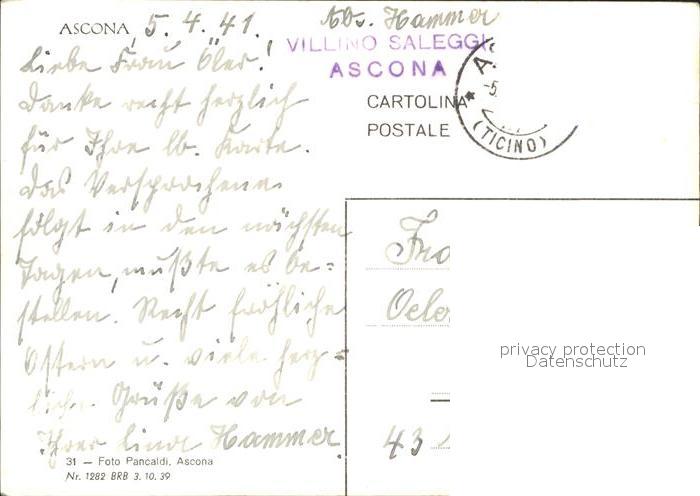 ASCONA, 5. 4. 41.
Abs. Hammer
VILLINO SALEGGI
ASCONA
Liebe Frau Öler!
Danke recht herzlich
für Ihre lb. Karte.
Das Versprochene
folgt in den nächsten
Tagen, mußte es be=
stellen. Recht fröhliche
Ostern u. viele herz=
liche Grüße von
Ihrer Hammer
31 — Foto Pancaldi, Ascona
Nr. 1282 BRB 3. 10. 39
CARTOLINA
POSTALE
(TICINO)
-5.
Oeler
43
privacy protection
Datenschutz